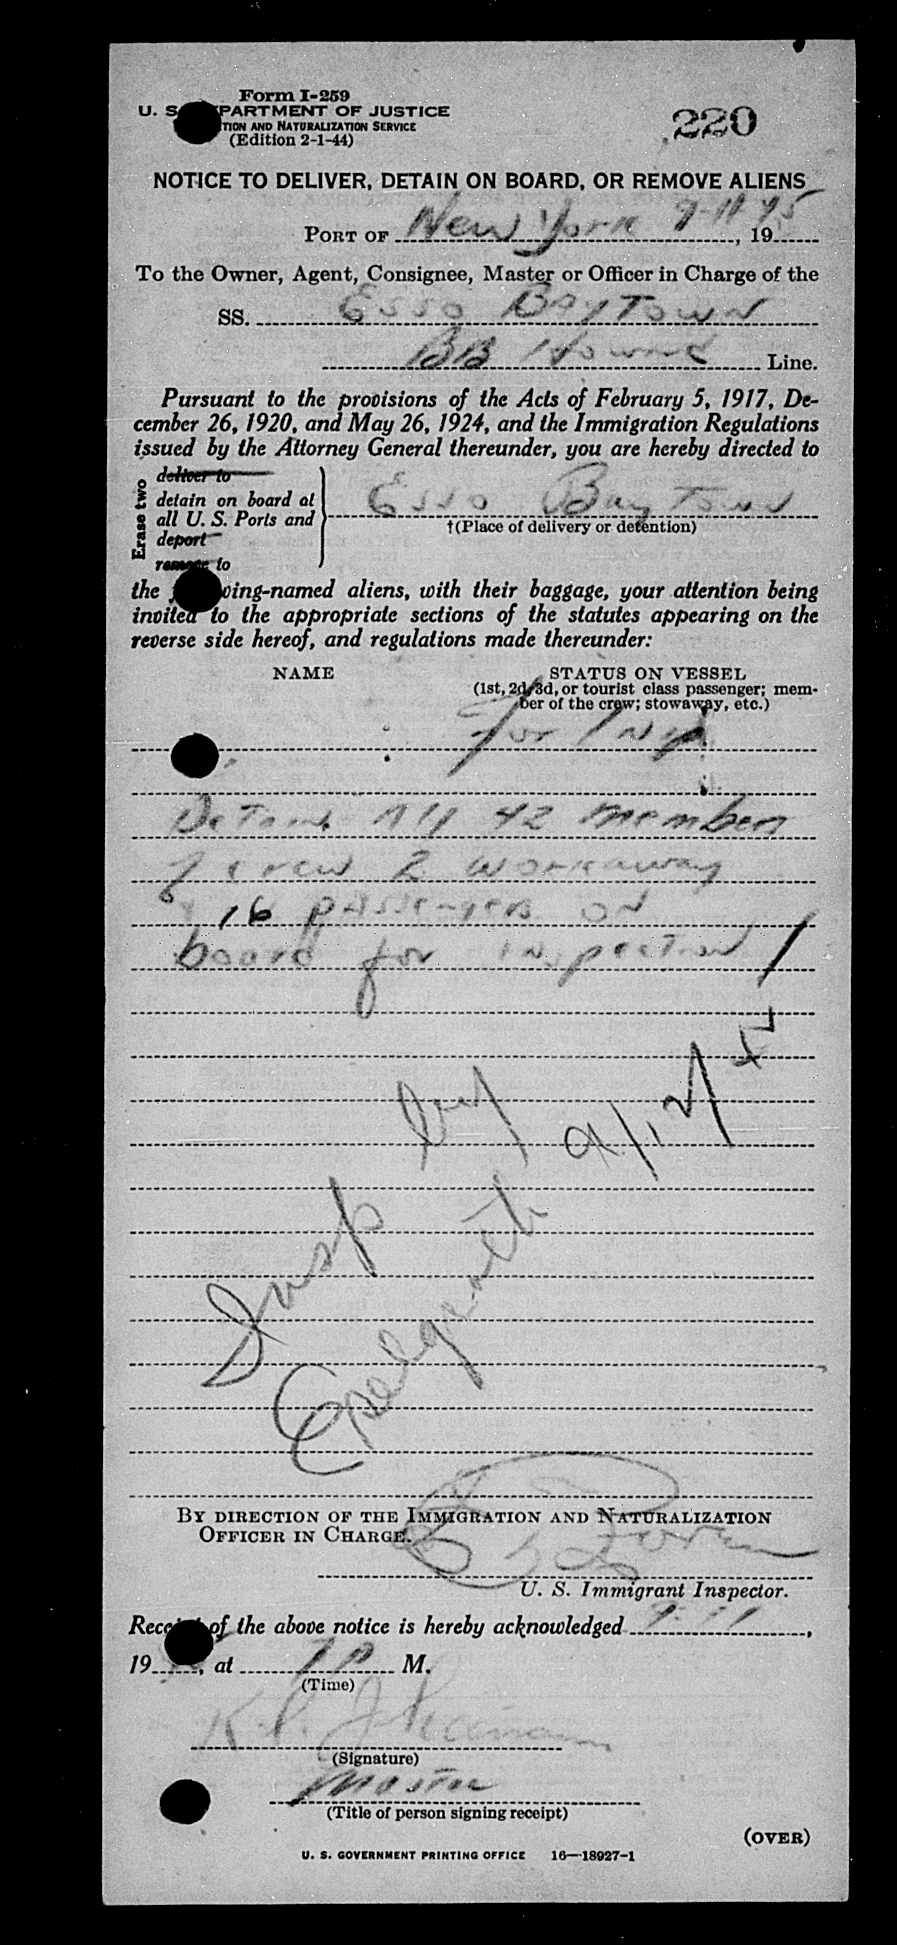 Form I-259
U. S. DEPARTMENT OF JUSTICE
TION AND NATURALIZATION SERVICE
(Edition 2-1-44)
220
NOTICE TO DELIVER, DETAIN ON BOARD, OR REMOVE ALIENS
PORT OF New York 9-11 45, 19
To the Owner, Agent, Consignee, Master or Officer in Charge of the
SS. Esso Baytown
BB Line.
Pursuant to the provisions of the Acts of February 5, 1917, De-
cember 26, 1920, and May 26, 1924, and the Immigration Regulations
issued by the Attorney General thereunder, you are hereby directed to
Erase two
deliver to
detain on board at
all U. S. Ports and
deport
remove to
Esso Baytown
†(Place of delivery or detention)
the following-named aliens, with their baggage, your attention being
invited to the appropriate sections of the statutes appearing on the
reverse side hereof, and regulations made thereunder:
NAME STATUS ON VESSEL
(1st, 2d, 3d, or tourist class passenger; mem-
ber of the crew; stowaway, etc.)
For Insp
Detain All 42 members
of crew 2 workaway
16 passengers on
board for inspection
Insp by
9/12/45
BY DIRECTION OF THE IMMIGRATION AND NATURALIZATION
OFFICER IN CHARGE.
U. S. Immigrant Inspector.
Receipt of the above notice is hereby acknowledged 9-11,
19, at 7 P M.
(Time)
(Signature)
Master
(Title of person signing receipt)
(OVER)
U. S. GOVERNMENT PRINTING OFFICE 16—18927-1